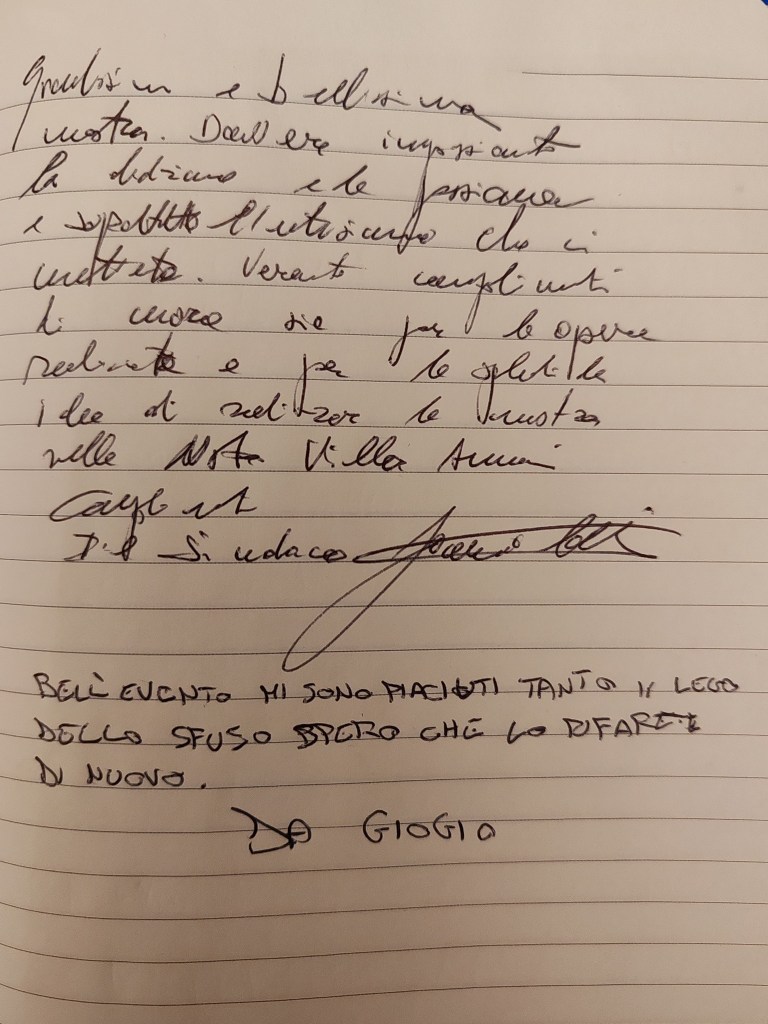 e bellissima
mostra. Davvero
la dedizione e la passione
e soprattutto l'entusiasmo che ci
mettete. Veramente complimenti
di cuore sia per le opere
realizzate e per la splendida
idea di realizzare la mostra
nella Villa
Il Sindaco
BELL'EVENTO MI SONO PIACIUTI TANTO I LEGO
DELLO SFUSO SPERO CHE LO RIFARETE
DI NUOVO.
DA GIOGIO